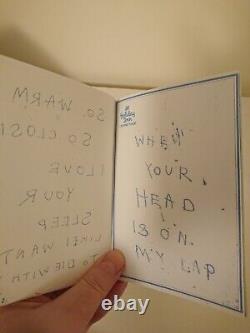 SO. WARM
SO CLOS
I LOVE
YOUR
SLEEP
LIKE I WANT
TO DIE WITH Y
Holiday
Inn
WHEN
YOUR
HEAD
IS ON.
MY LAP